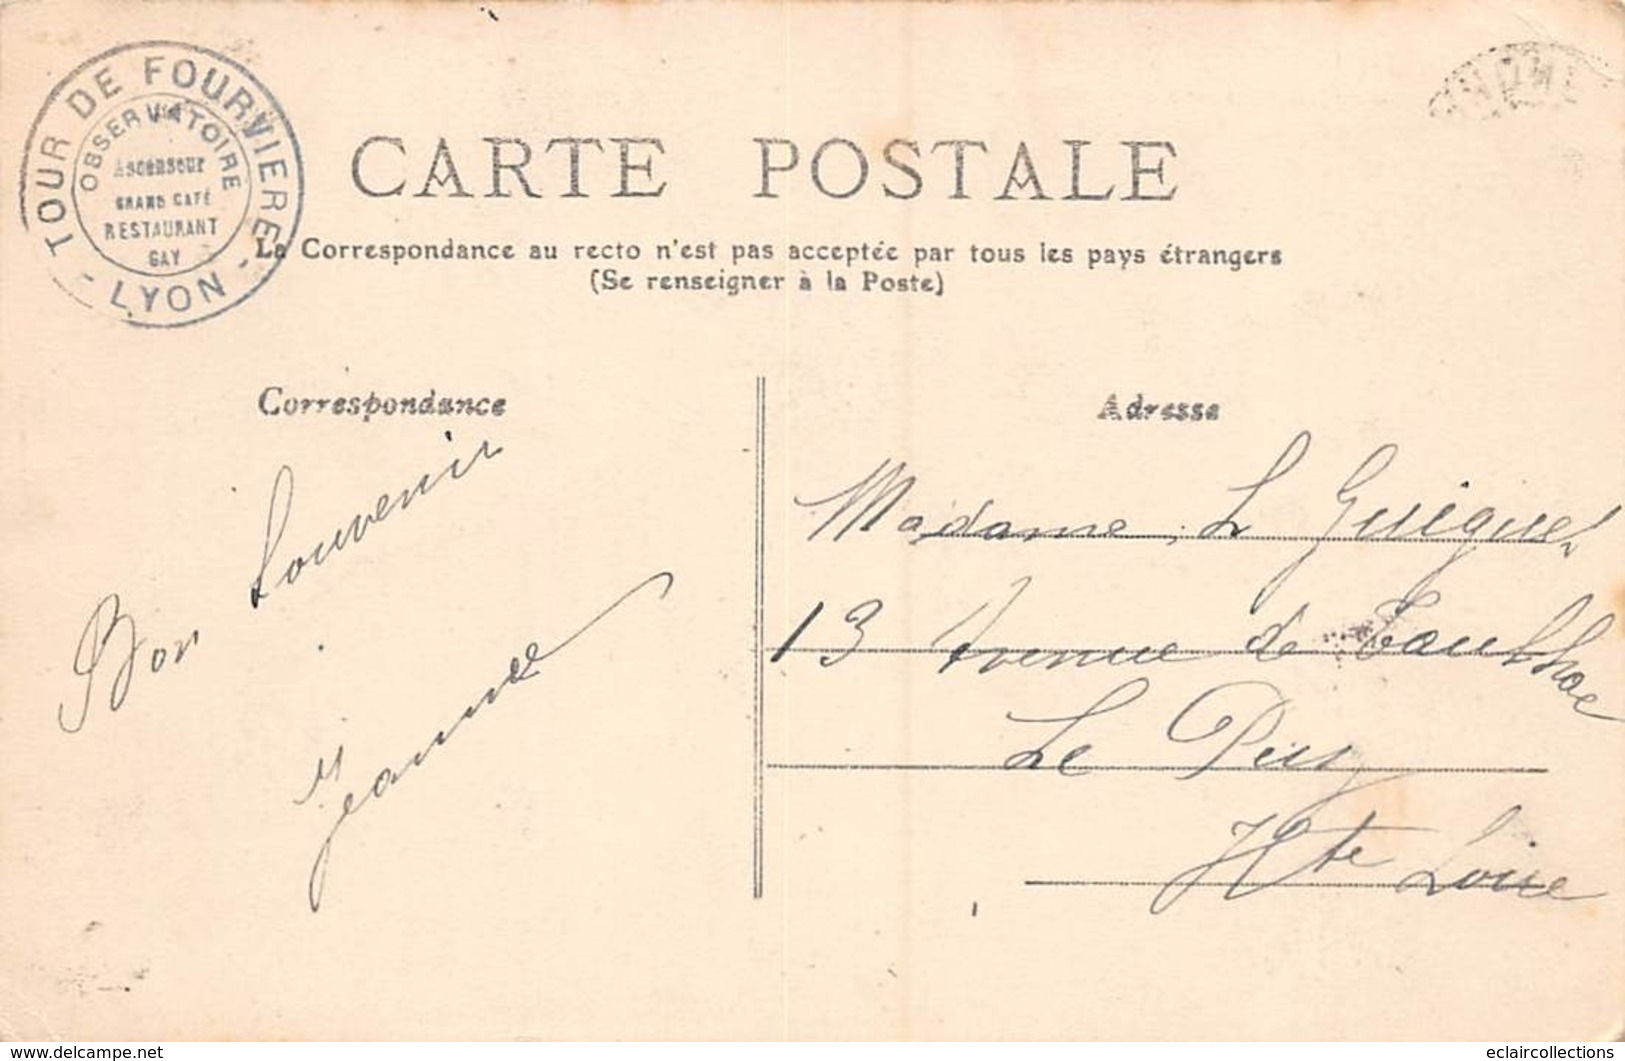 TOUR DE FOURVIERE
OBSERVATOIRE
Ascenseur
GRAND CAFÉ
RESTAURANT
GAY
- LYON -
CARTE POSTALE
La Correspondance au recto n'est pas acceptée par tous les pays étrangers
(Se renseigner à la Poste)
Correspondance
Bon Souvenir
Jeanne
Adresse
Madame L
13 Avenue de
Le Puy
Hte Loire
www.delcampe.net
eclaircollections